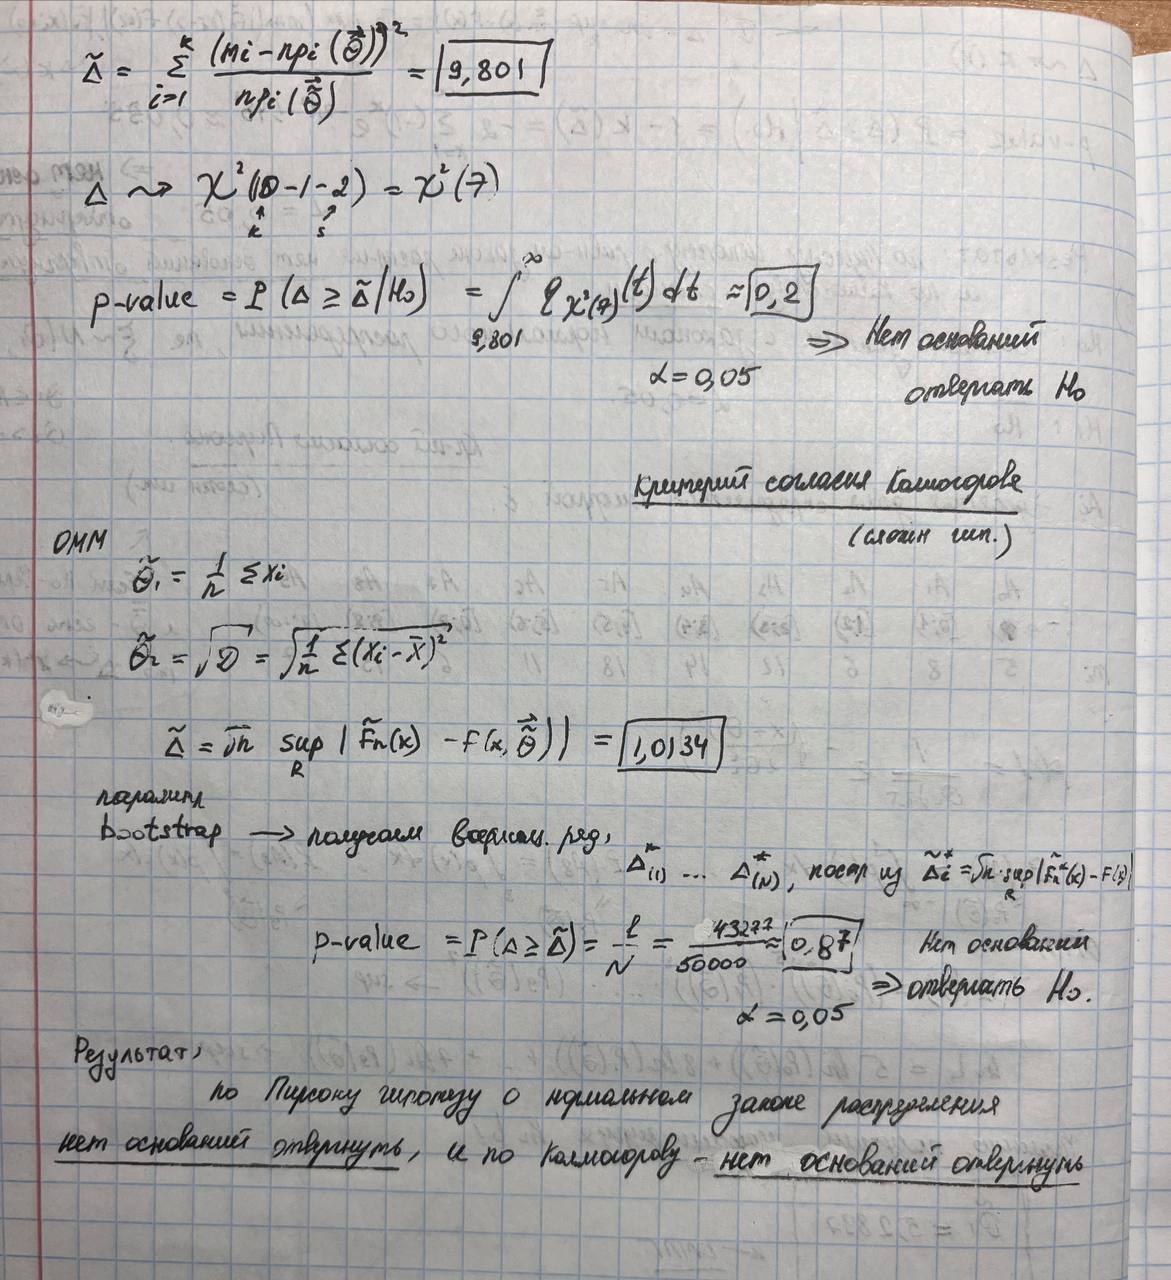 Δ̃ = Σ_{i=1}^{k} (mi - npi(θ̃))² / npi(θ̃) = 9,801
Δ ⇝ χ²(10-1-2) = χ²(7)
k s
p-value = P(Δ ≥ Δ̃ | H₀) = ∫_{9,801}^{∞} q_{χ²(7)}(t) dt ≈ 0,2
α = 0,05 ⇒ Нет оснований
отвергать H₀
Критерий согласия Колмогорова
(сложн гип.)
ОММ
θ̃₁ = 1/n Σ xi
θ̃₂ = √D = √(1/n Σ(xi - x̄)²)
Δ̃ = √n sup_R | F̃n(x) - F(x, θ̃) | = 1,0134
парамтр
bootstrap → получаем вариац. ряд,
Δ*₍₁₎ ... Δ*₍N₎, постр из Δ̃i* = √n · sup_R |F̃n*(x) - F(x)|
p-value = P(Δ ≥ Δ̃) = l/N = 43277/50000 ≈ 0,87 Нет оснований
α = 0,05 ⇒ отвергать H₀.
Результат,
по Пирсону гипотезу о нормальном законе распределения
нет оснований отвергнуть, и по Колмогорову - нет оснований отвергнуть